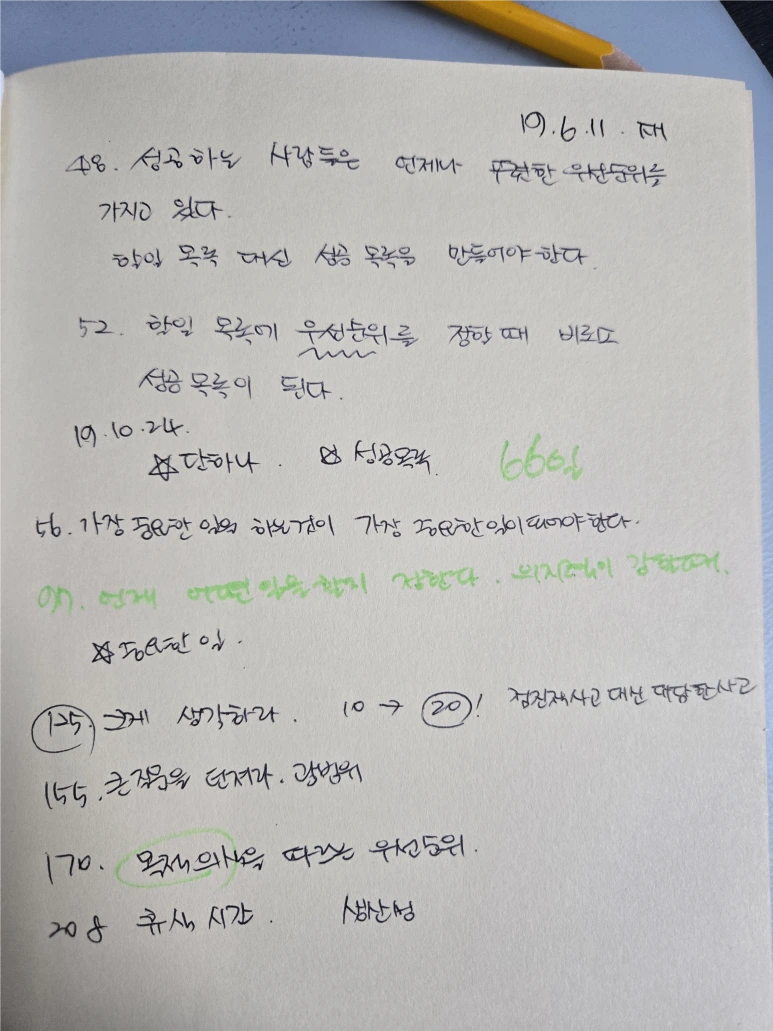 19.6.11.
48. 성공하는 사람들은 언제나 뚜렷한 우선순위를
가지고 있다.
할일 목록 대신 성공 목록을 만들어야 한다.
52. 할일 목록에 우선순위를 정할 때 비로소
성공 목록이 된다.
19.10.24.
☆단하나. ☆성공목록. 66일
56. 가장 중요한 일을 하는것이 가장 중요한일이 되어야 한다.
97. 언제 어떤일을 할지 정한다. 의지력이 강할때.
☆중요한 일.
125. 크게 생각하라. 10 → 20! 점진적사고 대신 대담한사고
155. 큰질문을 던져라. 광범위
170. 목적의식을 따르는 우선순위.
208 휴식 시간. 생산성